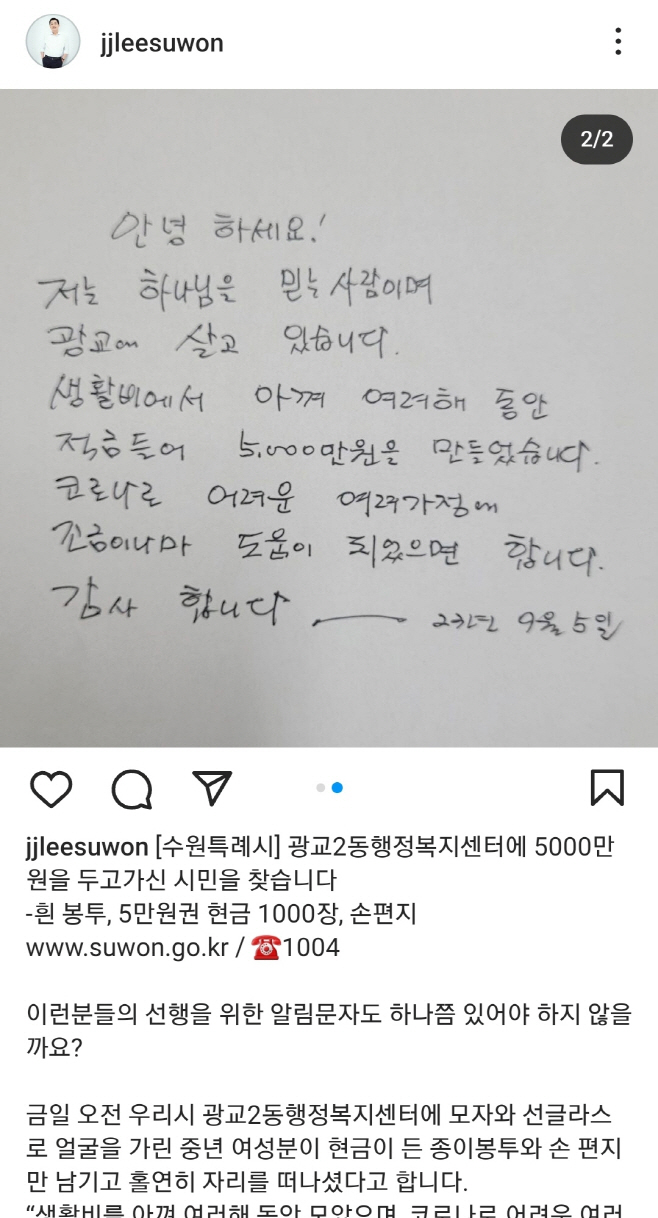 jjleesuwon
2/2
안녕 하세요!
저는 하나님을 믿는 사람이며
광교에 살고 있습니다.
생활비에서 아껴 여러해 동안
적금들어 5.000만원을 만들었습니다.
코로나로 어려운 여러가정에
조금이나마 도움이 되었으면 합니다.
감사 합니다 23년 9월 5일
jjleesuwon [수원특례시] 광교2동행정복지센터에 5000만
원을 두고가신 시민을 찾습니다
-흰 봉투, 5만원권 현금 1000장, 손편지
www.suwon.go.kr / ☎️1004
이런분들의 선행을 위한 알림문자도 하나쯤 있어야 하지 않을
까요?
금일 오전 우리시 광교2동행정복지센터에 모자와 선글라스
로 얼굴을 가린 중년 여성분이 현금이 든 종이봉투와 손 편지
만 남기고 홀연히 자리를 떠나셨다고 합니다.
“생활비를 아껴 여러해 동안 모았으며, 코로나로 어려운 여러